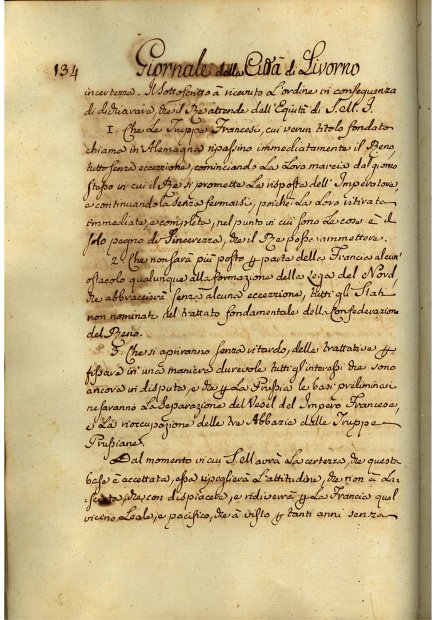 134 Giornale della Città di Livorno
incertezza. Il sottoscritto à ricevuto l'ordine in conseguenza
di dichiarare, che il Re attende dall'Equità di S.M.I.
1. Che le Truppe Francesi, cui verun titolo fondato
chiama in Alemagna ripassino immediatamente il Reno,
tutto senza eccezione, cominciando la loro marcia dal giorno
stesso in cui il Re si promette la risposta dell'Imperatore,
e continuandola senza fermarsi, poichè la loro ritirata
immediata, e completa, nel punto in cui sono le cose è il
solo pegno di sincerezza, che il Re possa ammettere.
2. Che non sarà più posto p parte della Francia alcun'
ostacolo qualunque alla formazione della Lega del Nord
che abbraccierà senza alcuna eccezzione, tutti gli Stati
non nominati del trattato fondamentale della Confederazione
del Reno.
3. Che si apriranno senza ritardo, delle trattative p
fissare in una maniera durevole tutti gl'interessi che sono
ancora in disputa, e che p la Prussia le basi preliminari
ne saranno la separazione del Vesel del Impero Francese,
e la rioccupazione delle tre Abbazie dalle Truppe
Prussiane.
Dal momento in cui S.M. avrà la certezza, che questa
base è accettata, essa ripoglierà l'attitudine, che non à la-
sciata, che con dispiacere, e ridiverrà p la Francia quel
vicino leale, e pacifico, che à visto p tanti anni senza